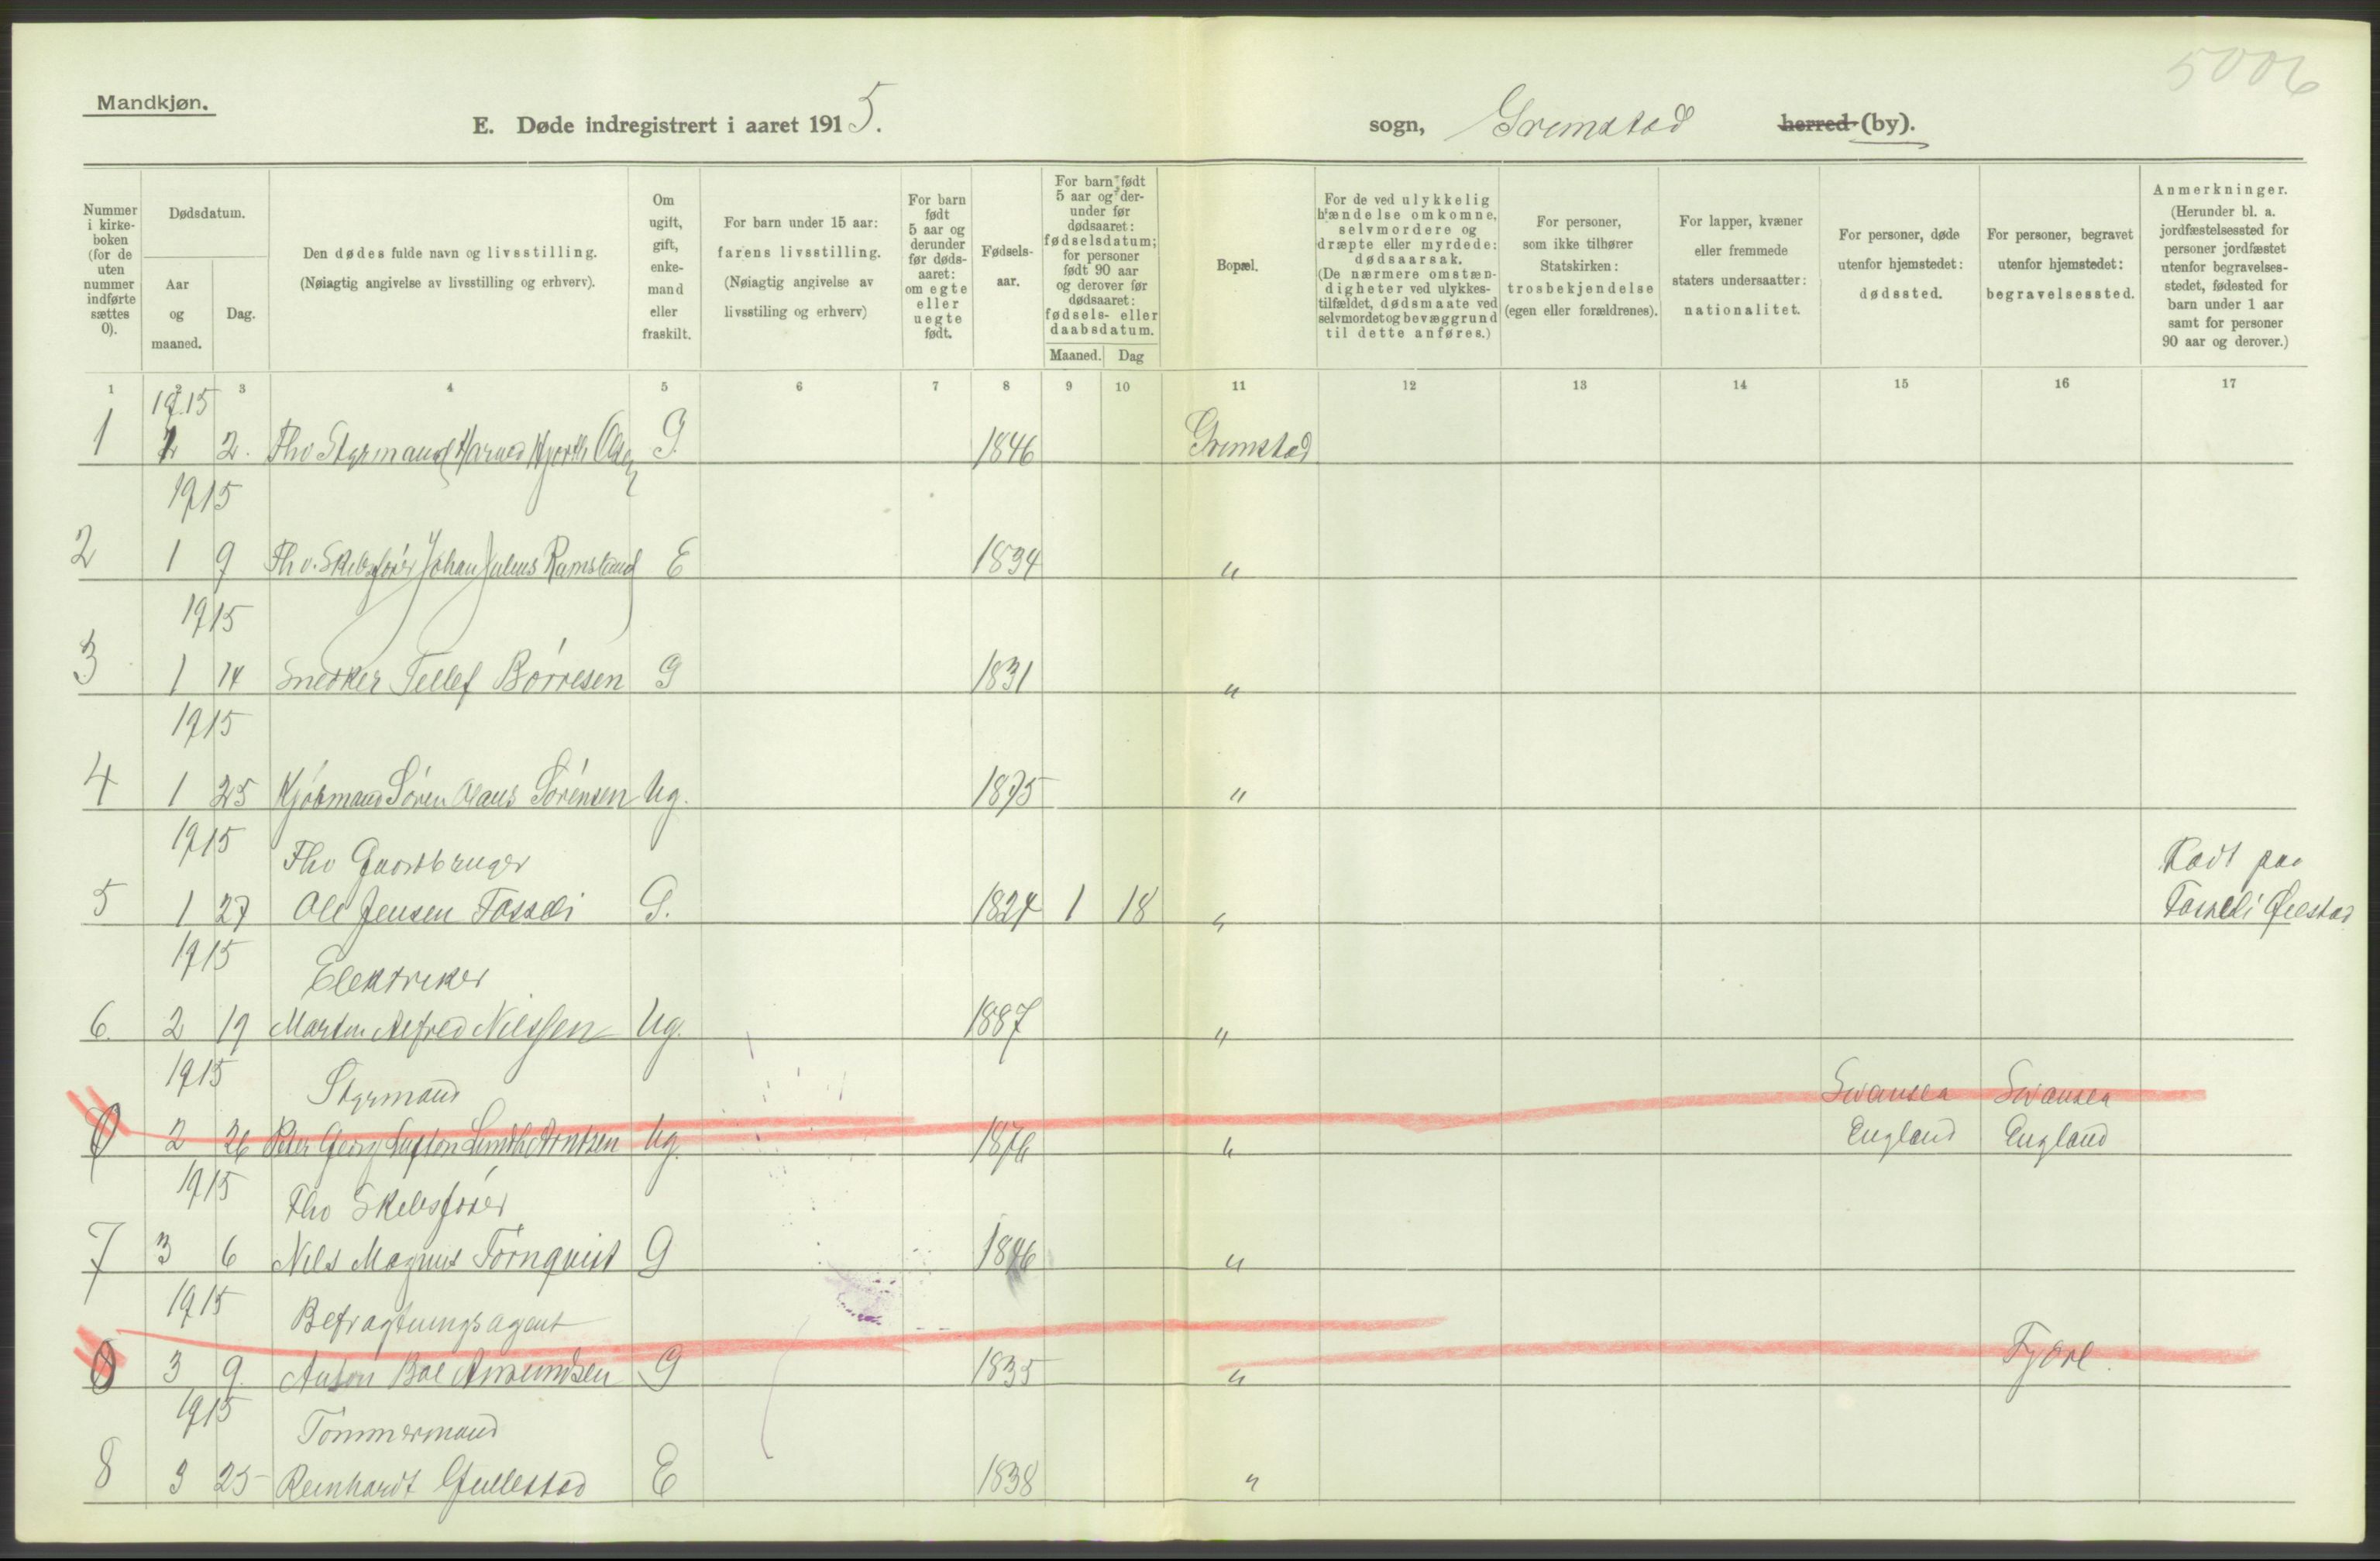 5006
Mandkjøn.
E. Døde indregistrert i aaret 1915.
sogn, Grimstad herred (by).
Nummer i kirke- boken (for de uten nummer indførte sættes 0).
Dødsdatum.
Aar og maaned.
Dag.
Den dødes fulde navn og livsstilling.
(Nøiagtig angivelse av livsstilling og erhverv).
Om ugift, gift, enke- mand eller fraskilt.
For barn under 15 aar:
farens livsstilling.
(Nøiagtig angivelse av
livsstiling og erhverv)
For barn født 5 aar og derunder før døds- aaret: om egte eller uegte født.
Fødsels- aar.
For barn født 5 aar og der- under før dødsaaret: fødselsdatum; for personer født 90 aar og derover før dødsaaret: fødsels- eller daabsdatum.
Maaned. Dag
Bopæl.
For de ved ulykkelig hændelse omkomne, selvmordere og dræpte eller myrdede: dødsaarsak.
(De nærmere omstæn- digheter ved ulykkes- tilfældet, dødsmaate ved selvmordet og bevæggrund til dette anføres.)
For personer, som ikke tilhører Statskirken: trosbekjendelse (egen eller forældrenes).
For lapper, kvæner eller fremmede staters undersaatter: nationalitet.
For personer, døde utenfor hjemstedet: dødssted.
For personer, begravet utenfor hjemstedet: begravelsessted.
Anmerkninger.
(Herunder bl. a. jordfæstelsessted for personer jordfæstet utenfor begravelses- stedet, fødested for barn under 1 aar samt for personer 90 aar og derover.)
1 2 3 4 5 6 7 8 9 10 11 12 13 14 15 16 17
1915
1 1 2. Fhv Styrmand Harald Hjorth Olsen G. 1846 Grimstad
1915
2 1 9 Fhv. Skibsfører Johan Julius Ramslund E 1834 "
1915
3 1 14 Snedker Tellef Børresen G 1831 "
1915
4 1 25 Kjøbmand Søren Olaus Sørensen Ug. 1875 "
1915 Fhv Gaardbruger Født paa
5 1 27 Ole Jensen Fosseli G. 1824 1 18 " Fosseli Øiestad
1915 Elektriker
6. 2 19 Martin Alfred Nielsen Ug. 1887 "
1915 Styrmand Swansea Swansea
0 2 26 Peter Georg Smith Arntzen Ug. 1876 " England England
1915 Fhv Skibsfører
7 3 6 Nils Magnus Törnquist G 1846 "
1915 Befragtningsagent
0 3 9. Anton Boe Amundsen G 1835 " Fjære.
1915 Tømmermand
8 3 25 Reinhardt Gullestad E 1838 "